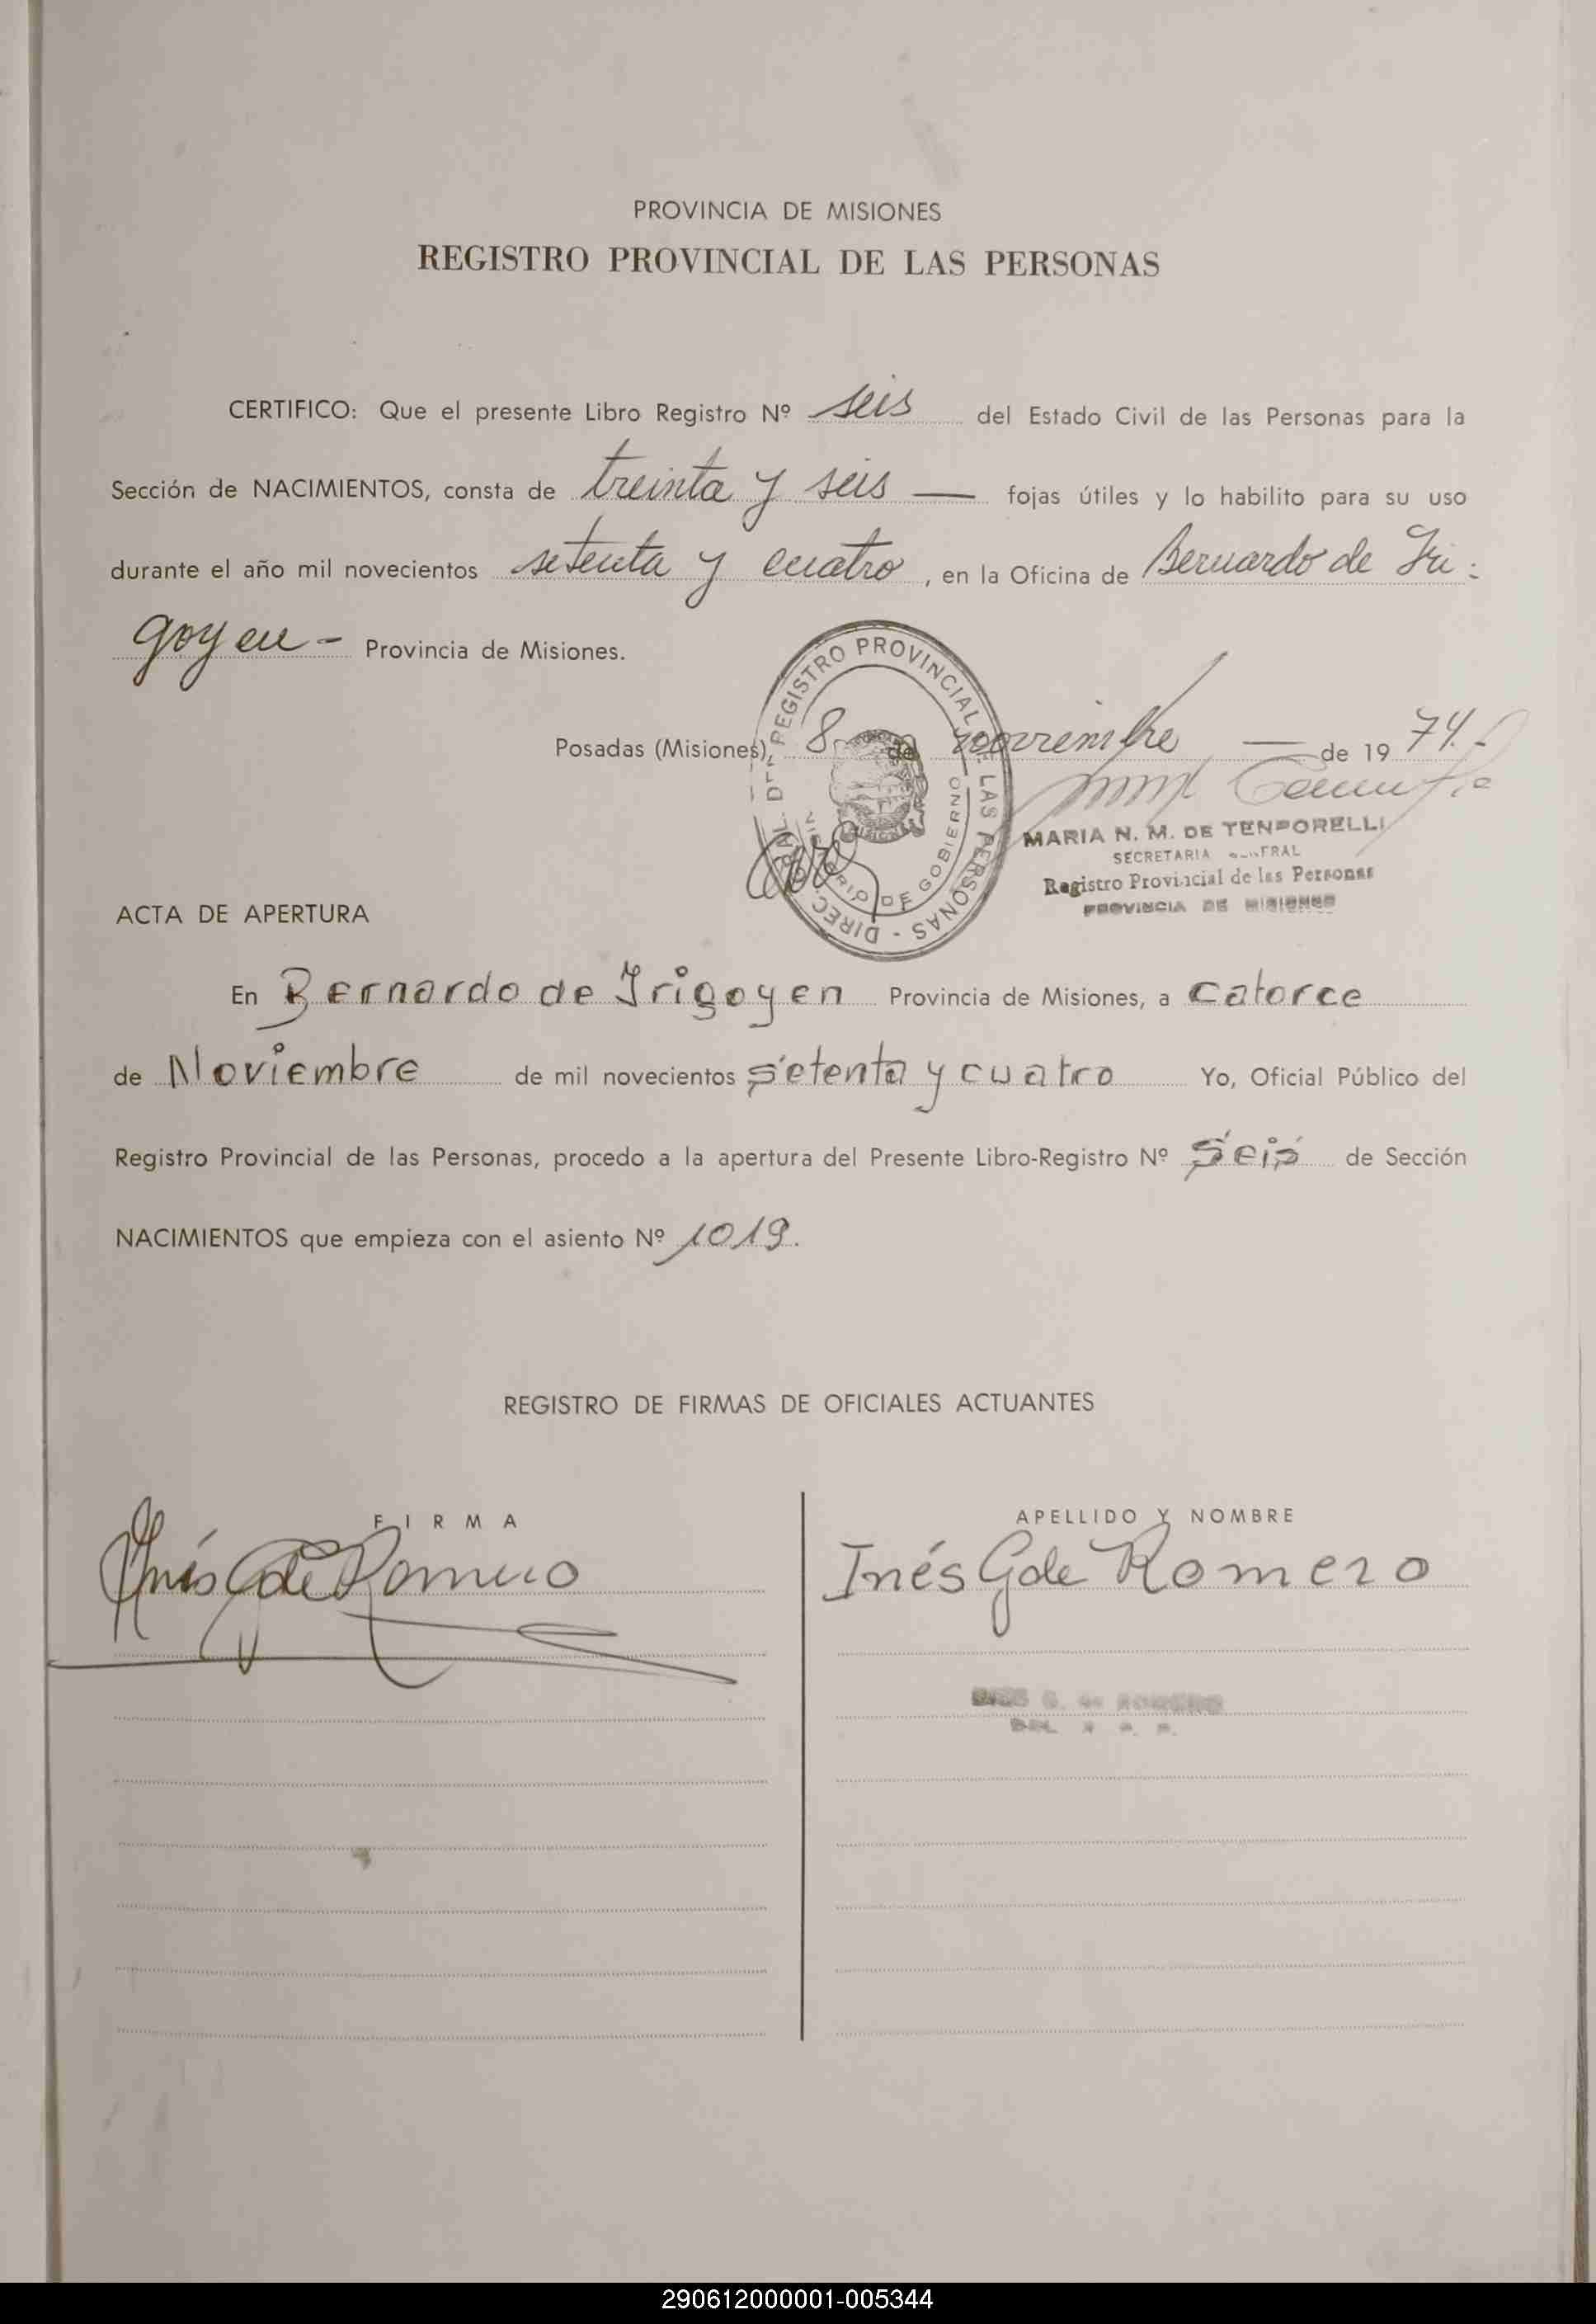 PROVINCIA DE MISIONES
REGISTRO PROVINCIAL DE LAS PERSONAS
CERTIFICO: Que el presente Libro Registro Nº seis del Estado Civil de las Personas para la
Sección de NACIMIENTOS, consta de treinta y seis — fojas útiles y lo habilito para su uso
durante el año mil novecientos setenta y cuatro, en la Oficina de Bernardo de Iri-
goyen - Provincia de Misiones.
Posadas (Misiones), 8 de noviembre — de 1974.-
REGISTRO PROVINCIAL DE LAS PERSONAS - DIREC. GRAL. DEL
MINISTERIO DE GOBIERNO
MARIA N. M. DE TEMPORELLI
SECRETARIA GENERAL
Registro Provincial de las Personas
PROVINCIA DE MISIONES
ACTA DE APERTURA
En Bernardo de Irigoyen Provincia de Misiones, a catorce
de Noviembre de mil novecientos setenta y cuatro Yo, Oficial Público del
Registro Provincial de las Personas, procedo a la apertura del Presente Libro-Registro Nº Seis de Sección
NACIMIENTOS que empieza con el asiento Nº 1019.
REGISTRO DE FIRMAS DE OFICIALES ACTUANTES
FIRMA
APELLIDO Y NOMBRE
Inés G de Romero
Inés G de Romero
INES G. de ROMERO
290612000001-005344